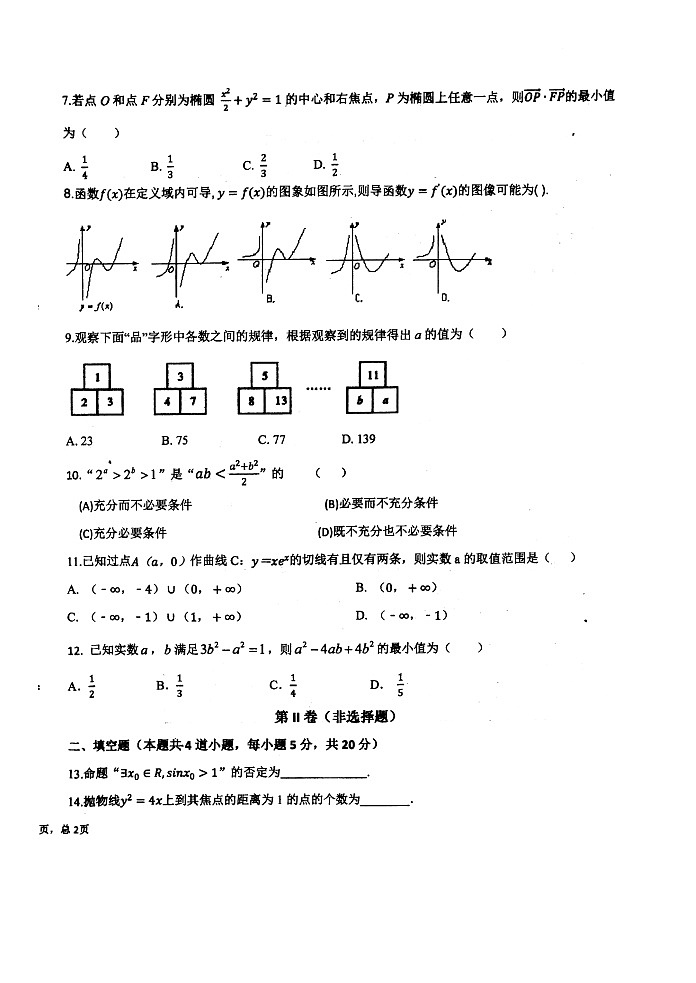 7.若点 O 和点 F 分别为椭圆 x²/2 + y² = 1 的中心和右焦点，P 为椭圆上任意一点，则OP·FP的最小值
为（ ）
A. 1/4 B. 1/3 C. 2/3 D. 1/2
8.函数f(x)在定义域内可导, y = f(x)的图象如图所示,则导函数y = f′(x)的图像可能为( ).
y x O y = f(x)
y x O A.
y x O B.
y x O C.
y x O D.
9.观察下面“品”字形中各数之间的规律，根据观察到的规律得出 a 的值为（ ）
1 3 5 11
2 3 4 7 8 13 …… b a
A. 23 B. 75 C. 77 D. 139
10. “2ᵃ > 2ᵇ > 1” 是 “ab < (a²+b²)/2” 的 （ ）
(A)充分而不必要条件 (B)必要而不充分条件
(C)充分必要条件 (D)既不充分也不必要条件
11.已知过点A（a，0）作曲线 C：y＝xeˣ的切线有且仅有两条，则实数 a 的取值范围是（ ）
A. （﹣∞，﹣4）∪（0，＋∞） B. （0，＋∞）
C. （﹣∞，﹣1）∪（1，＋∞） D. （﹣∞，﹣1）
12. 已知实数 a ，b 满足3b² − a² = 1，则 a² − 4ab + 4b² 的最小值为（ ）
A. 1/2 B. 1/3 C. 1/4 D. 1/5
第 II 卷（非选择题）
二、填空题（本题共 4 道小题，每小题 5 分，共 20 分）
13.命题“∃x₀ ∈ R, sinx₀ > 1”的否定为______________.
14.抛物线y² = 4x上到其焦点的距离为 1 的点的个数为________.
页，总 2页